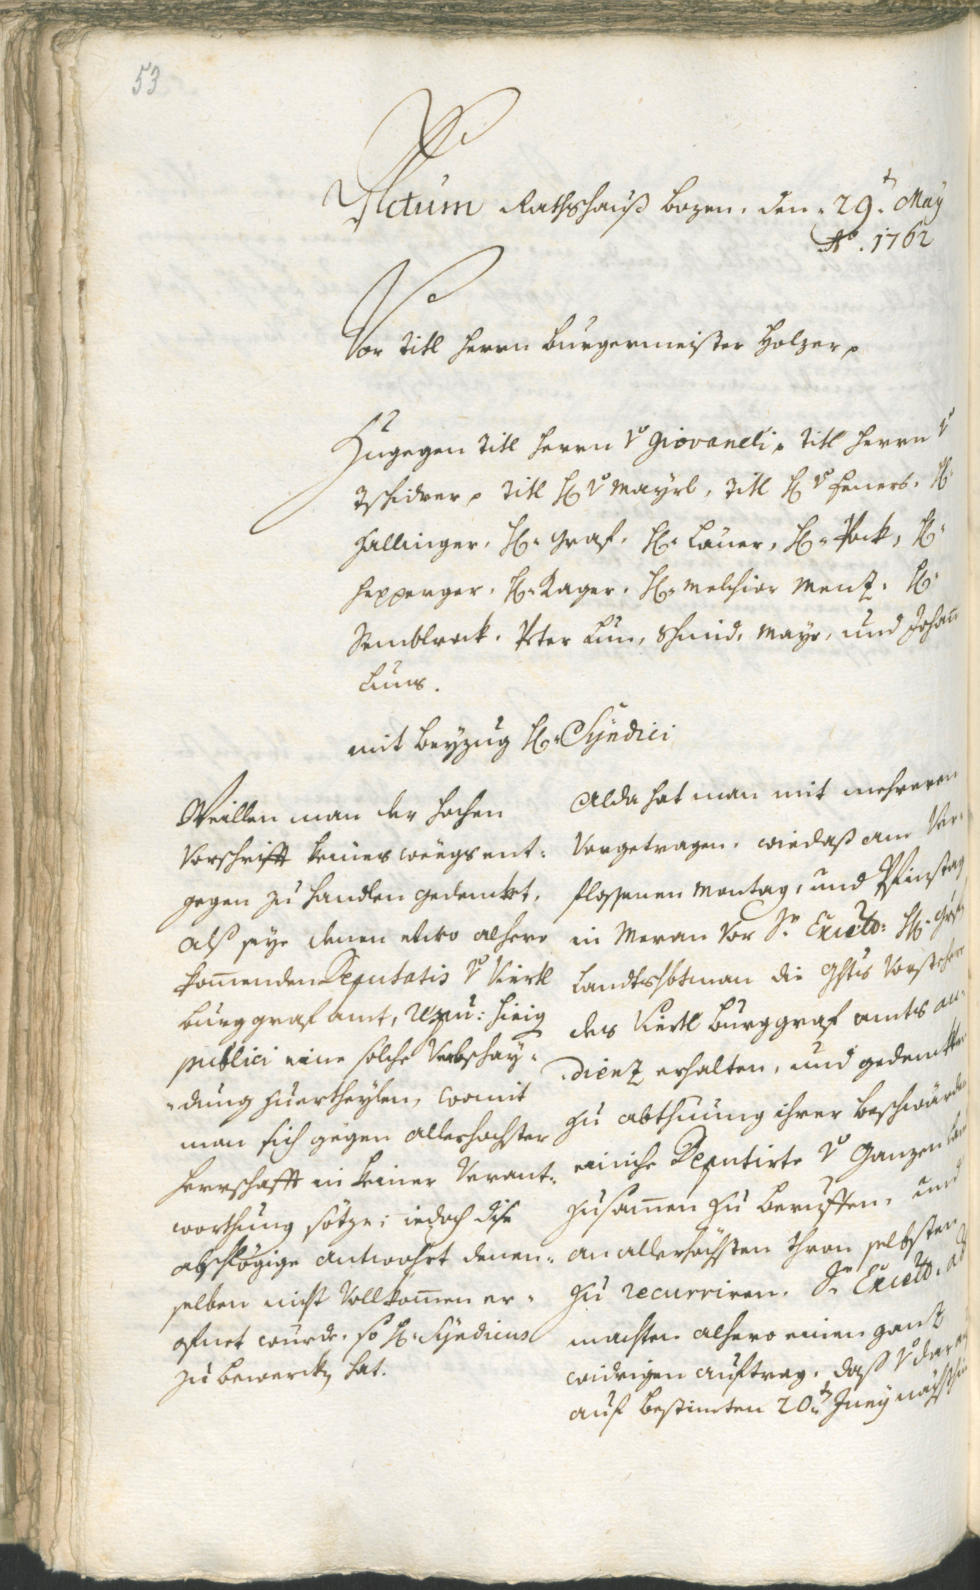 53
Actum Rathshauß Bozen, den 29t May
Ao. 1762
Vor Titl Herrn Burgermeister Holzer p
Zugegen Titl Herrn v Giovaneli p Titl Herrn v
Tschidrer p Titl H v Mayrl, Titl H v Hepers. H:
Hallinger. H: Graf. H: Lauer, H: Pock, H:
Hepperger. H: Kager. H: Melchior Menz. H:
Semblrock. Peter Lun, Schmid, Mayr, und Johann
Luns.
mit Beyzug H: Syndici
Weillen man der hochen
Vorschrifft keineswegs ent:
gegen zu handlen gedenket,
alß seye denen etwo alhero
kommenden Deputatis v Viertl
Burggrafamt, Nomine: hieig
publici eine solche Verbschay:
dung zuertheylen, womit
man sich gegen allerhochster
Herrschafft in keiner Verant:
worthung sötze; iedoch dise
abschlögige antwohrt denen:
selben nicht vollkommen er:
ofnet wurde. so H: Syndicus
zu bewerckhen hat.
Alda hat man mit mehreren
Vorgetragen, wiedaß am Ver:
flossenen Montag, und Pfinstag
in Meran vor Sr Excell: H: Grafen
Landtshbtman die Gstrs Vorsteher
des Viertl Burggrafamts au:
dienz erhalten, und gedenkten
zu abthuung ihrer Beschwärden
einiche Deputirte v Ganzen Land
zusammen zu Beruffen, und
an allerhöchsten Thron selbsten
zu recurriren. Sr Excell: aber
machten alhero einen ganz
widrigen auftrag, daß v deren
auf bestimten 20t Juny nächsthin